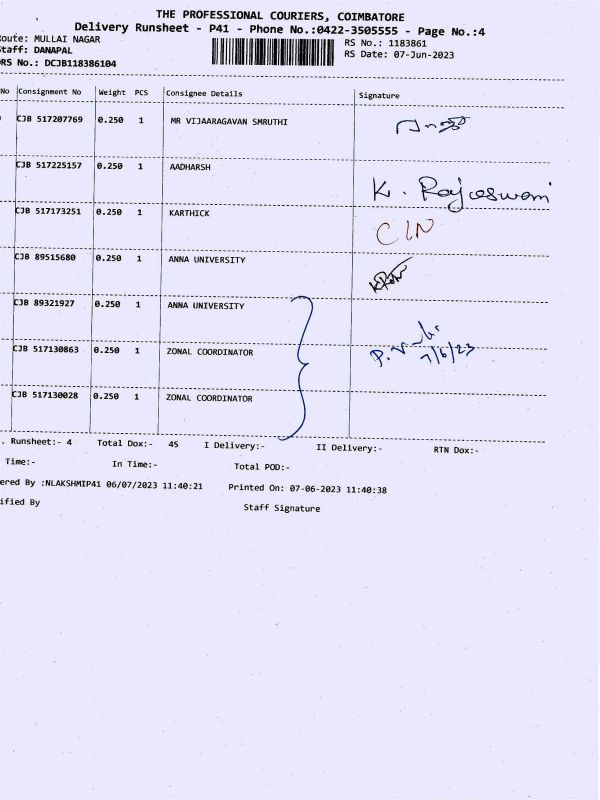 THE PROFESSIONAL COURIERS, COIMBATORE
Delivery Runsheet - P41 - Phone No.:0422-3505555 - Page No.:4
Route: MULLAI NAGAR
RS No.: 1183861
Staff: DANAPAL
RS Date: 07-Jun-2023
DRS No.: DCJB118386104
No Consignment No Weight PCS Consignee Details Signature
CJB 517207769 0.250 1 MR VIJAARAGAVAN SMRUTHI
CJB 517225157 0.250 1 AADHARSH K. Rajeswari
CJB 517173251 0.250 1 KARTHICK C/N
CJB 89515680 0.250 1 ANNA UNIVERSITY
CJB 89321927 0.250 1 ANNA UNIVERSITY
CJB 517130863 0.250 1 ZONAL COORDINATOR 7/6/23
CJB 517130028 0.250 1 ZONAL COORDINATOR
. Runsheet:- 4 Total Dox:- 45 I Delivery:- II Delivery:- RTN Dox:-
Time:- In Time:- Total POD:-
ered By :NLAKSHMIP41 06/07/2023 11:40:21 Printed On: 07-06-2023 11:40:38
ified By Staff Signature